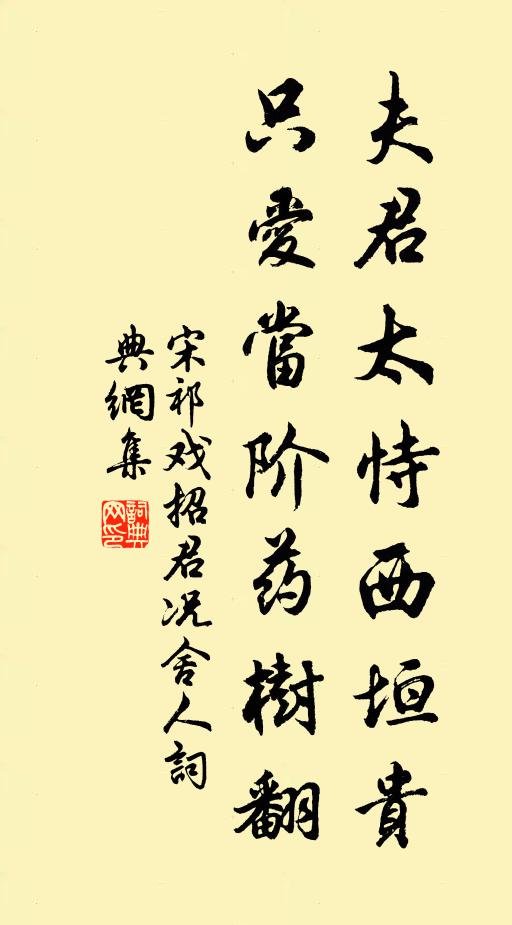 夫君太恃西垣貴
只愛當阶药樹翻
宋祁戏招君况舍人詞
典網集
詞典
网印